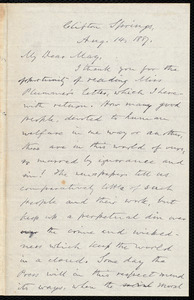 Clifton Springs,
Aug. 14, 1887.
My Dear May,
I thank you for the
opportunity of reading Miss
Plummer's letter, which I have
with return. How many good
people, devoted to human
welfare in one way or another,
there are in this world of ours,
so marred by ignorance and
sin! The newspapers tell us
comparatively little of such
people and their work, but
keep up a perpetual din
over the crime and wicked-
ness which keep the world
in a cloud. Some day the
Press will in this respect mend
its ways, when the moral